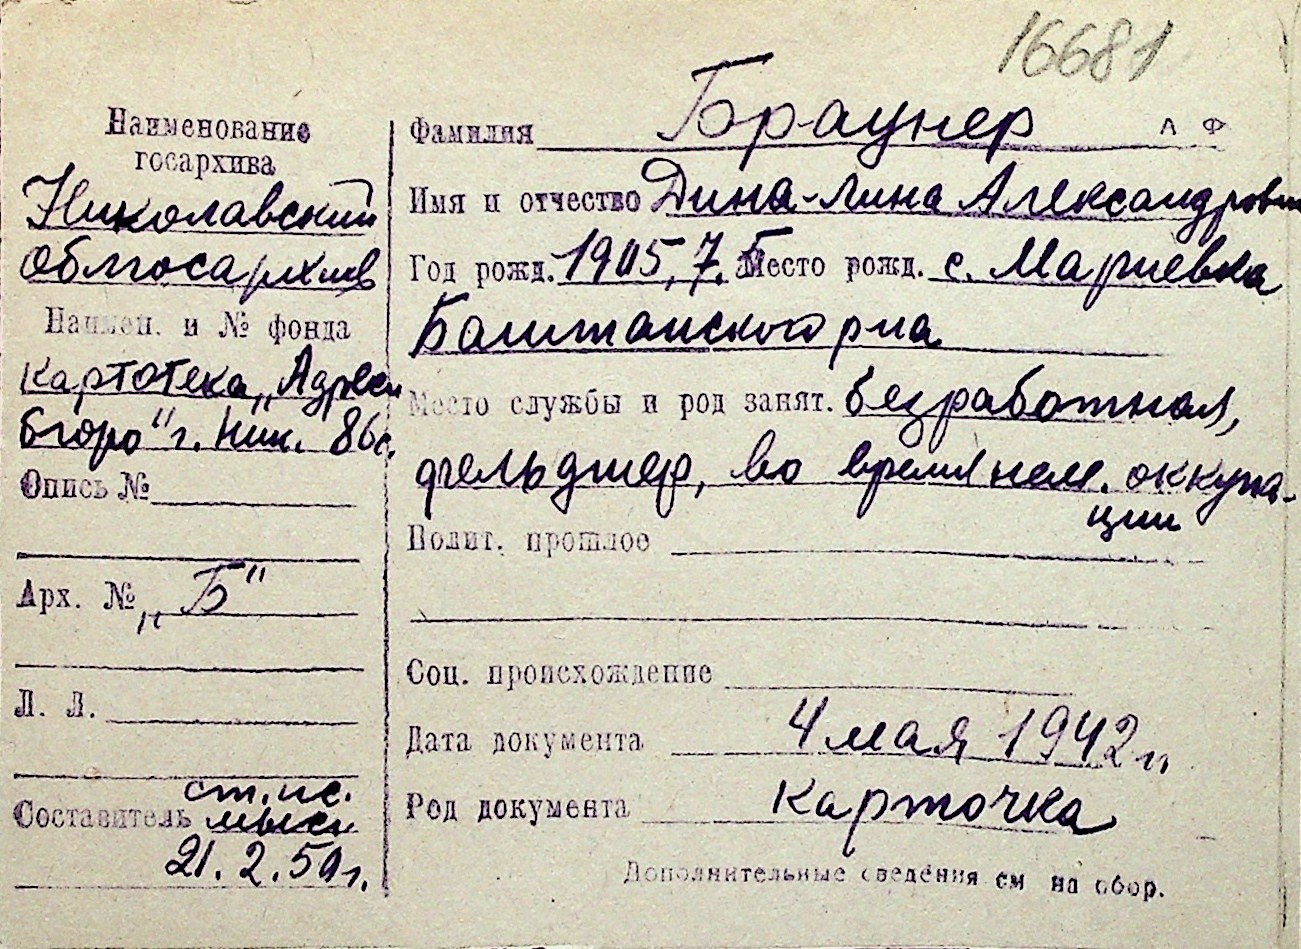 16681
Наименование
госархива
Николавский
облгосархив
Наимен. и № фонда
картотека „Адресн
бюро" г. Ник. 86с.
Опись №
Арх. № „Б"
Л. Л.
ст. ис.
Составитель
21. 2. 50 г.
Фамилия Браунер А Ф
Имя и отчество Дина-Лина Александровна
Год рожд. 1905, 7. Место рожд. с. Мариевка
Баштанского р-на
Место службы и род занят. безработная,
фельдшер, во время нем. оккупа-
ции
Полит. прошлое
Соц. происхождение
Дата документа 4 мая 1942 г.
Род документа карточка
Дополнительные сведения см на обор.